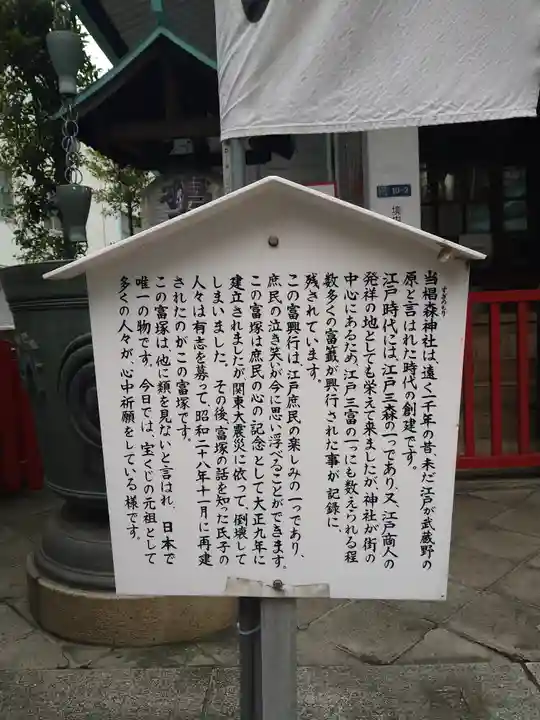 当椙森神社は、遠く一千年の昔、未だ江戸が武蔵野の
すぎのもり
原と言はれた時代の創建です。
江戸時代には、江戸三森の一つであり、又、江戸商人の
発祥の地としても栄えて来ましたが、神社が街の
中心にあるため、江戸三富の一つにも数えられる程
数多くの富籤が興行された事が記録に
残されています。
この富興行は、江戸庶民の楽しみの一つであり、
庶民の泣き笑いが今に思い浮べることができます。
この富塚は庶民の心の記念として大正九年に
建立されましたが、関東大震災に依って、倒壊して
しまいました。その後、富塚の話を知った氏子の
人々は有志を募って、昭和二十八年十一月に再建
されたのがこの富塚です。
この富塚は他に類を見ないと言はれ、日本で
唯一の物です。今日では、宝くじの元祖として
多くの人々が、心中祈願をしている様です。
10-2